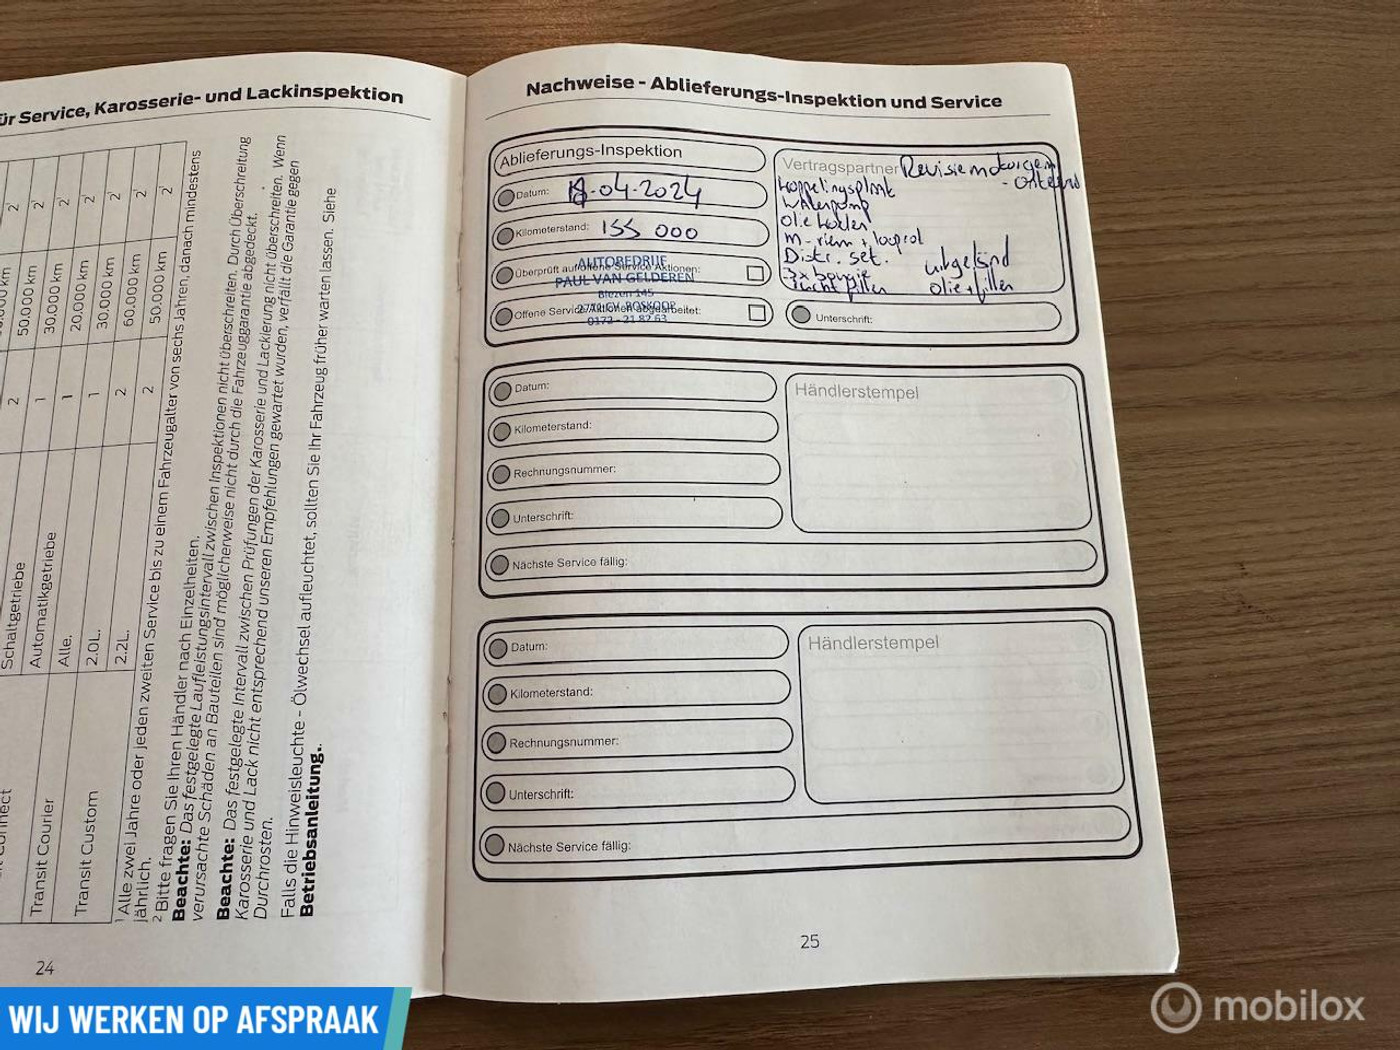 ür Service, Karosserie- und Lackinspektion
50.000 km
30.000 km
20.000 km
30.000 km
60.000 km
50.000 km
2
1
1
1
2
2
2
2¹
2¹
2¹
2¹
2¹
2
Schaltgetriebe
Automatikgetriebe
Alle.
2.0L.
2.2L.
Transit Courier
Transit Custom
¹ Alle zwei Jahre oder jeden zweiten Service bis zu einem Fahrzeugalter von sechs Jahren, danach mindestens
jährlich.
² Bitte fragen Sie Ihren Händler nach Einzelheiten.
Beachte: Das festgelegte Laufleistungsintervall zwischen Inspektionen nicht überschreiten. Durch Überschreitung
verursachte Schäden an Bauteilen sind möglicherweise nicht durch die Fahrzeuggarantie abgedeckt.
Beachte: Das festgelegte Intervall zwischen Prüfungen der Karosserie und Lackierung nicht überschreiten. Wenn
Karosserie und Lack nicht entsprechend unseren Empfehlungen gewartet wurden, verfällt die Garantie gegen
Durchrosten.
Falls die Hinweisleuchte - Ölwechsel aufleuchtet, sollten Sie Ihr Fahrzeug früher warten lassen. Siehe
Betriebsanleitung.
24
Nachweise - Ablieferungs-Inspektion und Service
Ablieferungs-Inspektion
Datum: 18-04-2024
Kilometerstand: 155 000
Überprüft auf offene Service Aktionen:
Offene Service Aktionen abgearbeitet:
AUTOBEDRIJF
PAUL VAN GELDEREN
Biezen 145
2771 CV BOSKOOP
0172 - 21 82 63
Vertragspartner Revisie
Koppelingsplaat
Waterpomp
Olie
M-riem +
Distr. set.
3x bougie uitgeleind
Lucht filter olie + filter
Unterschrift:
Datum:
Kilometerstand:
Rechnungsnummer:
Unterschrift:
Nächste Service fällig:
Händlerstempel
Datum:
Kilometerstand:
Rechnungsnummer:
Unterschrift:
Nächste Service fällig:
Händlerstempel
25
WIJ WERKEN OP AFSPRAAK
mobilox